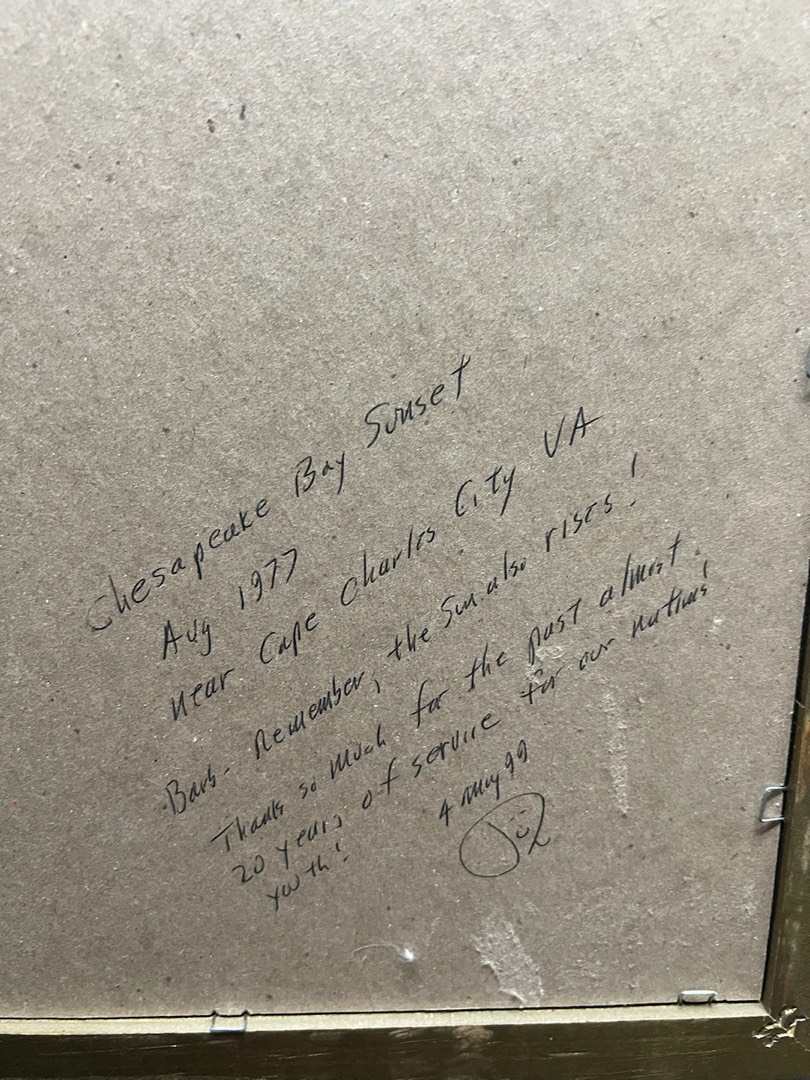 Chesapeake Bay Sunset
Aug 1977
near Cape Charles City VA
Barb- Remember, the Sun also rises!
Thanks so much for the past almost
20 years of service for our nations
youth!
4 May 99